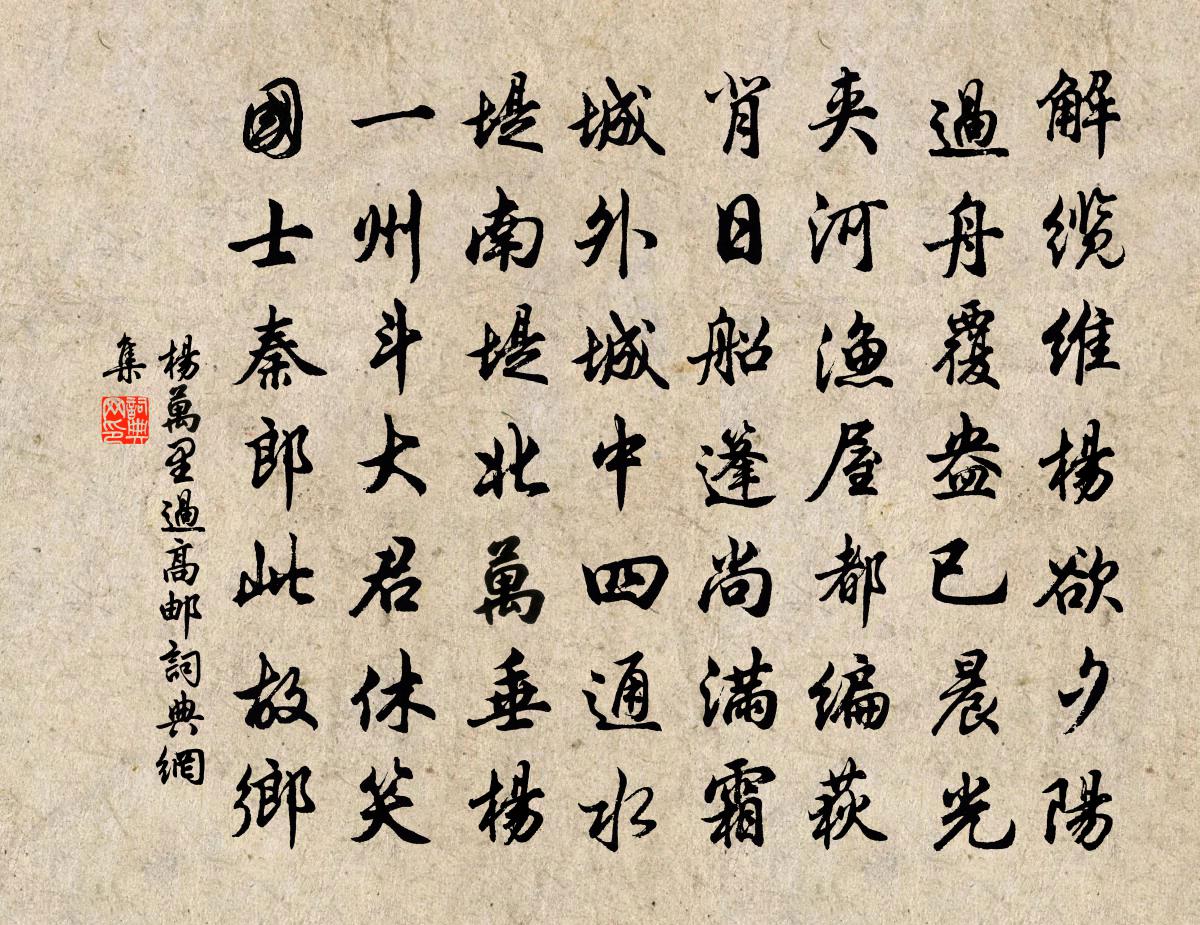 解缆維楊欲夕陽
過舟覆盎已晨光
夾河漁屋都編荻
背日船篷尚滿霜
城外城中四通水
堤南堤北萬垂楊
一州斗大君休笑
國士秦郎此故鄉
楊萬里過高邮詞典網
集
詞典
网印